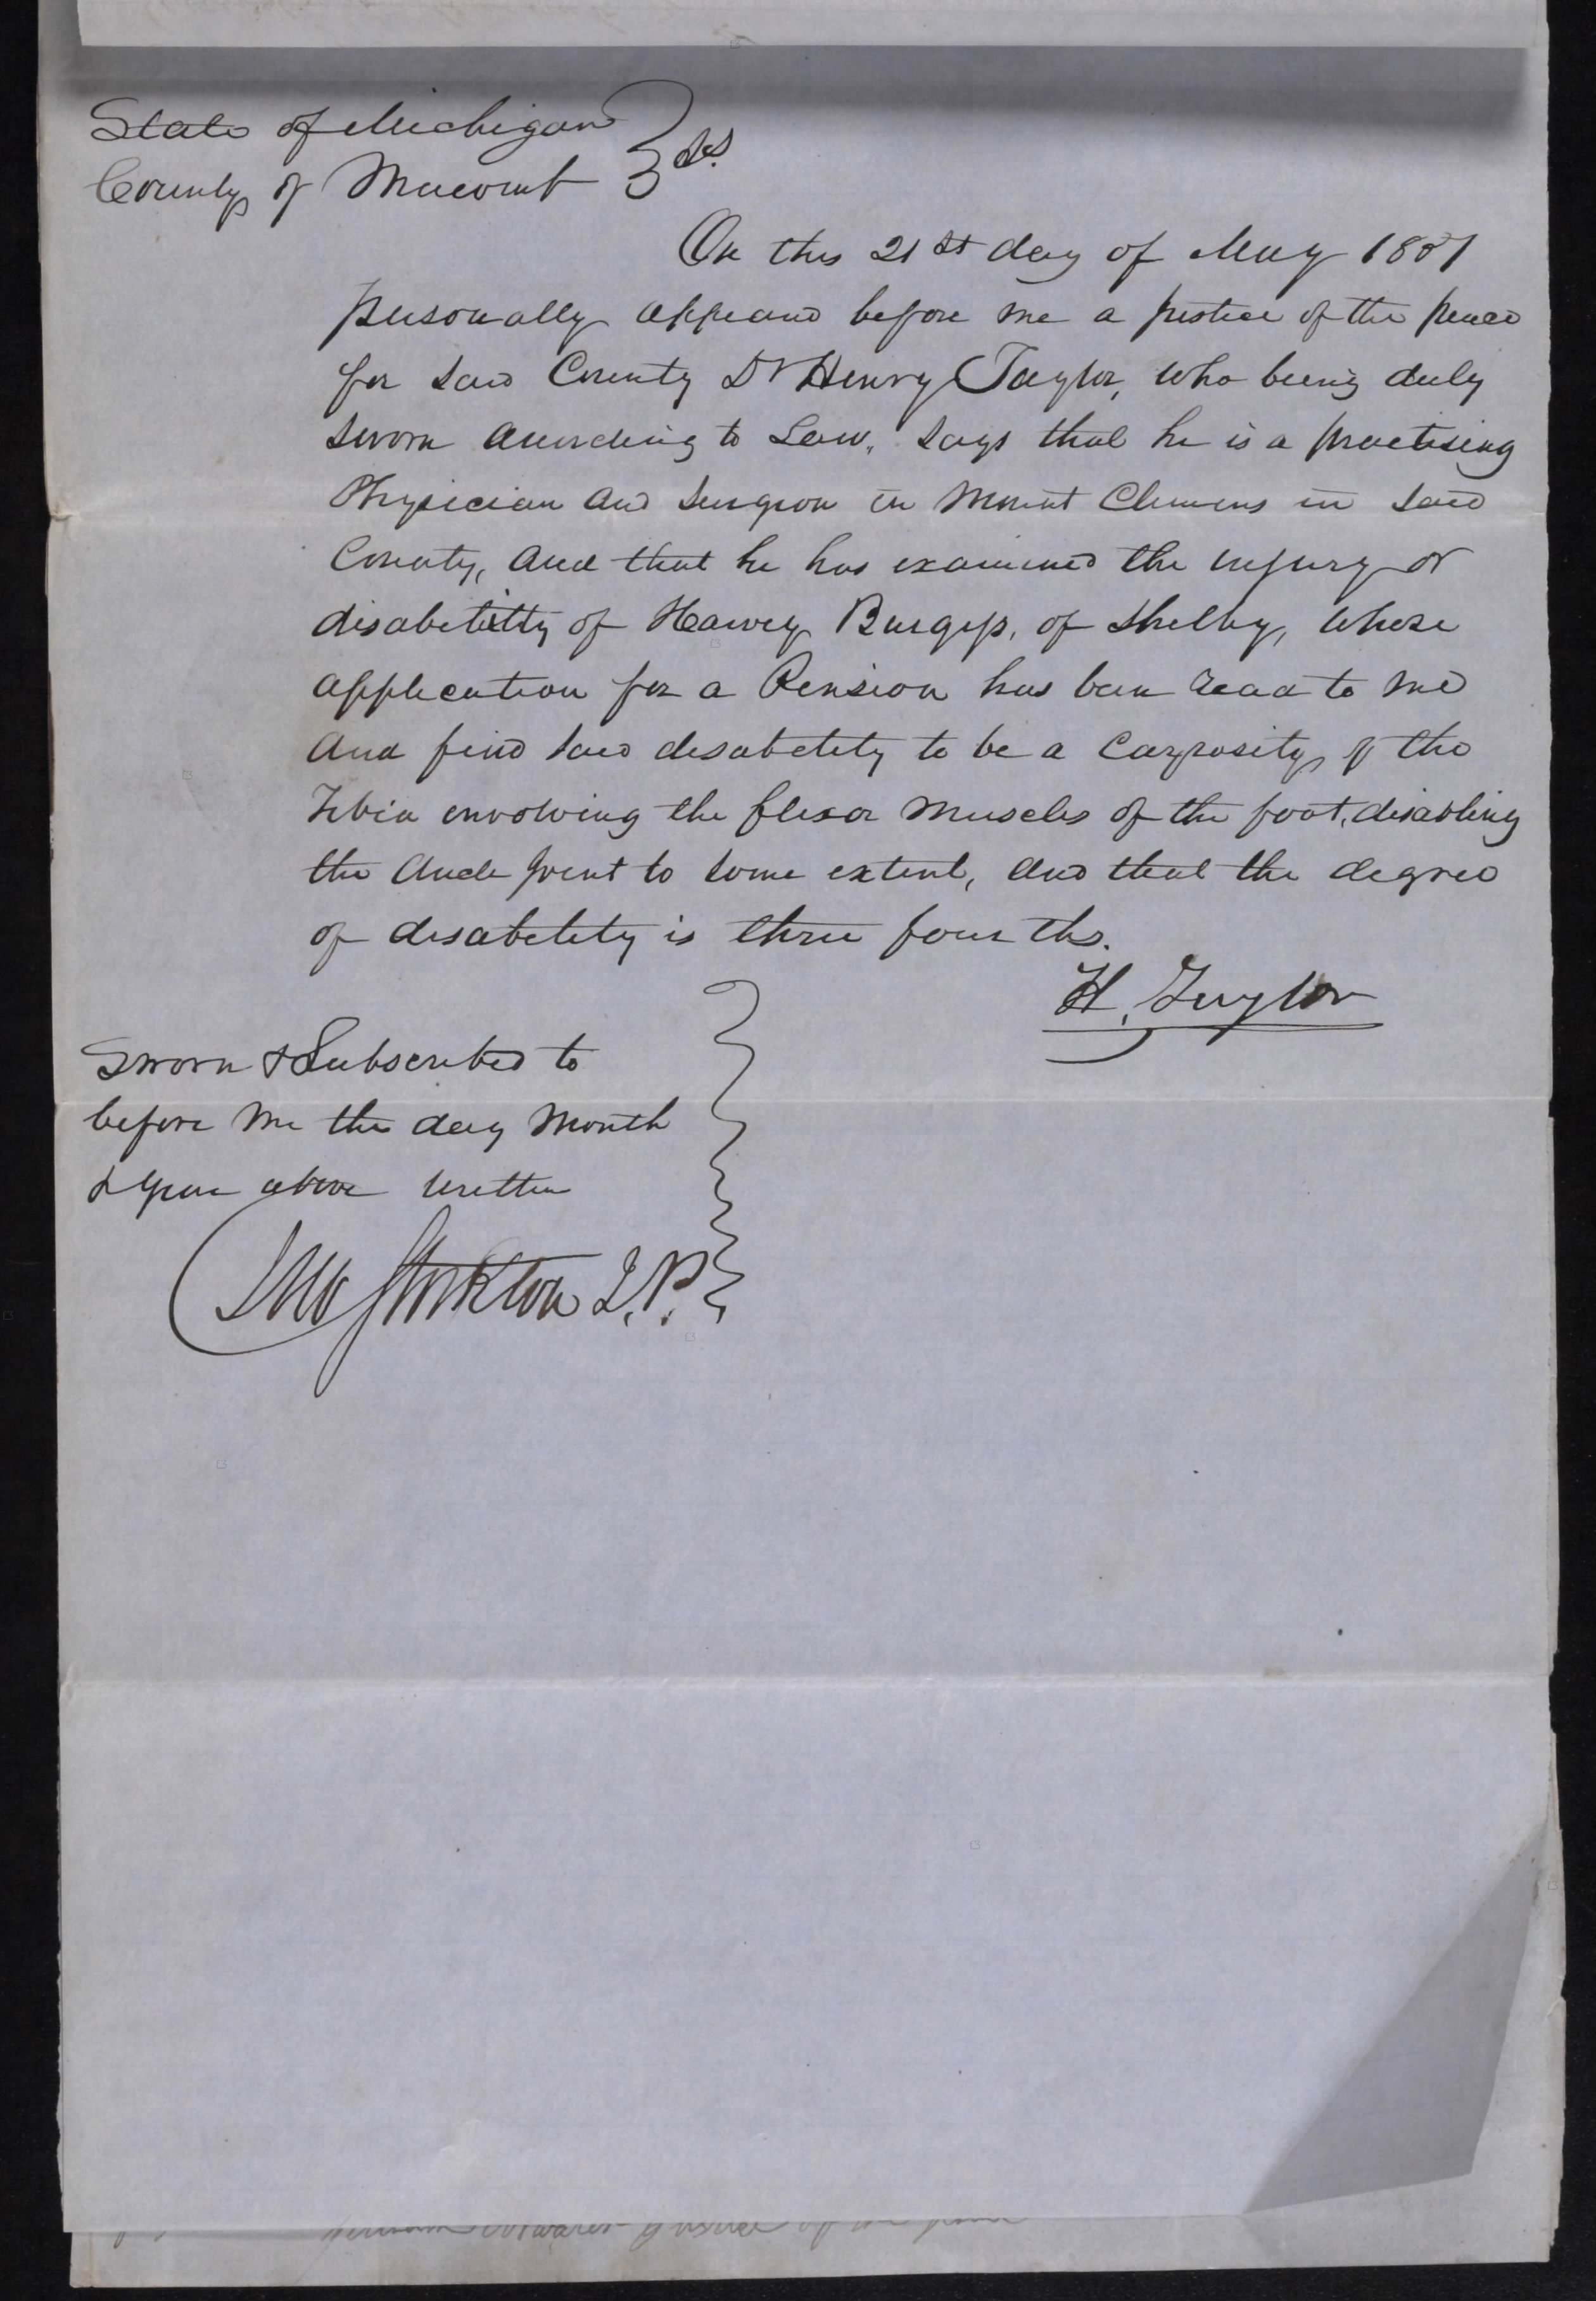 State of Michigan
County of Macomb } ss.
On this 21st day of May 18
personally appeard before me a justice of the peace
for said County Dr Henry Taylor, who being duly
sworn according to Law, says that he is a practising
Physician and Surgeon in Mount Clemens in said
County, and that he has examined the injury or
disabelitty of Harvey Burgess, of Shelby, whose
application for a Pension has been read to me
and find said disabelity to be a of the
Tibia envolving the flexor muscles of the foot, disabling
the Ancle joint to some extent, and that the degree
of disabelity is three fourths.
H. Taylor
Sworn & Subscribed to
before me the day month
& year above written
Jno Stockton J.P.
Justice of the peace